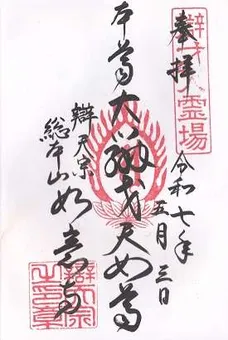 奉拝
令和七年五月三日
本尊大辯才天女尊
辯天宗
総本山如意寺
霊場